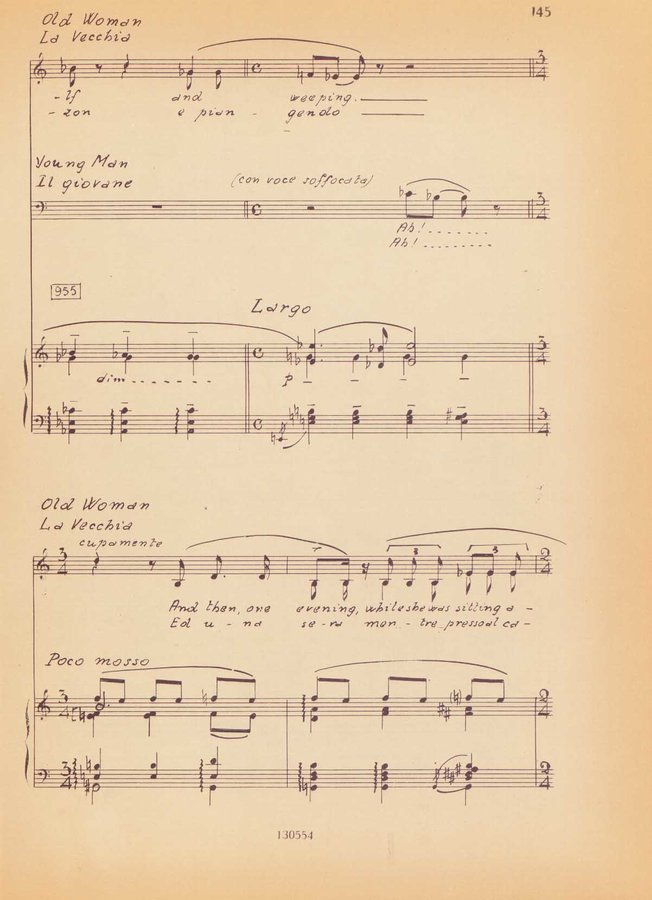 145
Old Woman
La Vecchia
-lf and weeping.
-zon e pian - gendo
Young Man
Il giovane
(con voce soffocata)
Ah! . . . . . . .
Ah! . . . . . . . .
955
Largo
dim. - - - - - -
p
Old Woman
La Vecchia
cupamente
3 3
And then, one evening, while she was sitting a -
Ed u - na se - ra men - tre pressoal ca -
Poco mosso
130554